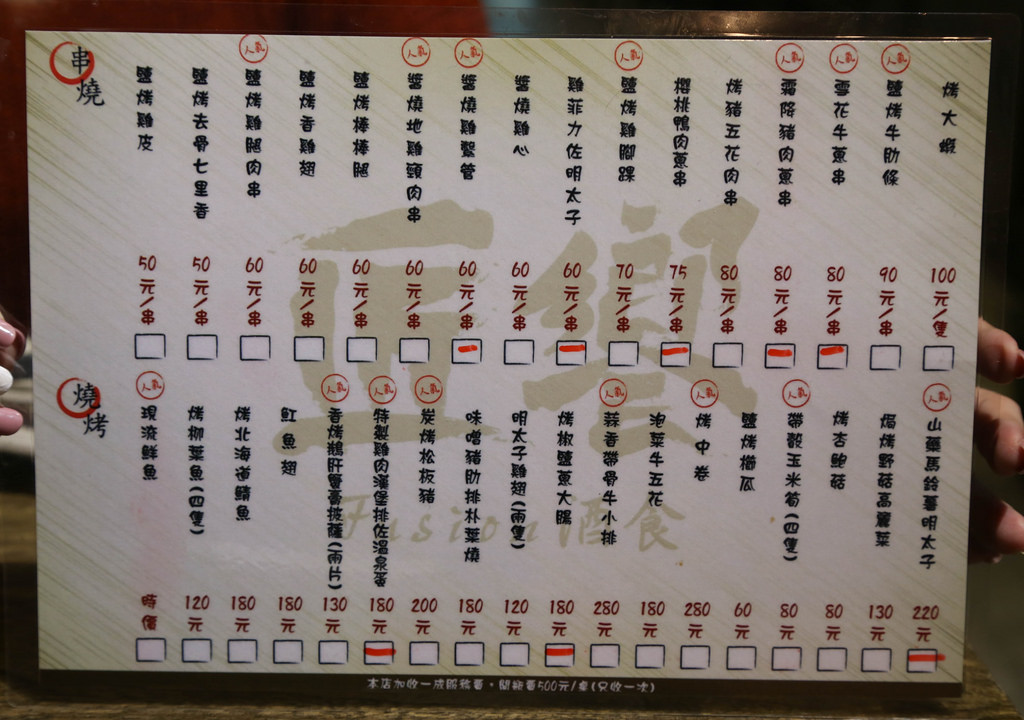 串燒
鹽烤雞皮 50元/串
鹽烤去骨七里香 50元/串
人氣 鹽烤雞腿肉串 60元/串
鹽烤香雞翅 60元/串
鹽烤棒棒腿 60元/串
人氣 醬燒地雞頸肉串 60元/串
人氣 醬燒雞繫管 60元/串
醬燒雞心 60元/串
雞菲力佐明太子 60元/串
人氣 鹽烤雞腳踝 70元/串
櫻桃鴨肉蔥串 75元/串
烤豬五花肉串 80元/串
人氣 霜降豬肉蔥串 80元/串
人氣 雪花牛蔥串 80元/串
人氣 鹽烤牛肋條 90元/串
烤大蝦 100元/隻
燒烤
人氣 現流鮮魚 時價
烤柳葉魚(四隻) 120元
烤北海道鯖魚 180元
魟魚翅 180元
人氣 香烤鵝肝蟹膏披薩(兩片) 130元
人氣 特製雞肉漢堡排佐溫泉蛋 180元
人氣 炭烤松板豬 200元
味噌豬肋排朴葉燒 180元
明太子雞翅(兩隻) 120元
烤椒鹽蔥大腸 180元
人氣 蒜香帶骨牛小排 280元
泡菜牛五花 180元
人氣 烤中卷 280元
鹽烤櫛瓜 60元
人氣 帶殼玉米筍(四隻) 80元
烤杏鮑菇 80元
焗烤野菇高麗菜 130元
人氣 山藥馬鈴薯明太子 220元
正饗
Fusion 酒食
本店加收一成服務費。開瓶費500元/桌(只收一次)